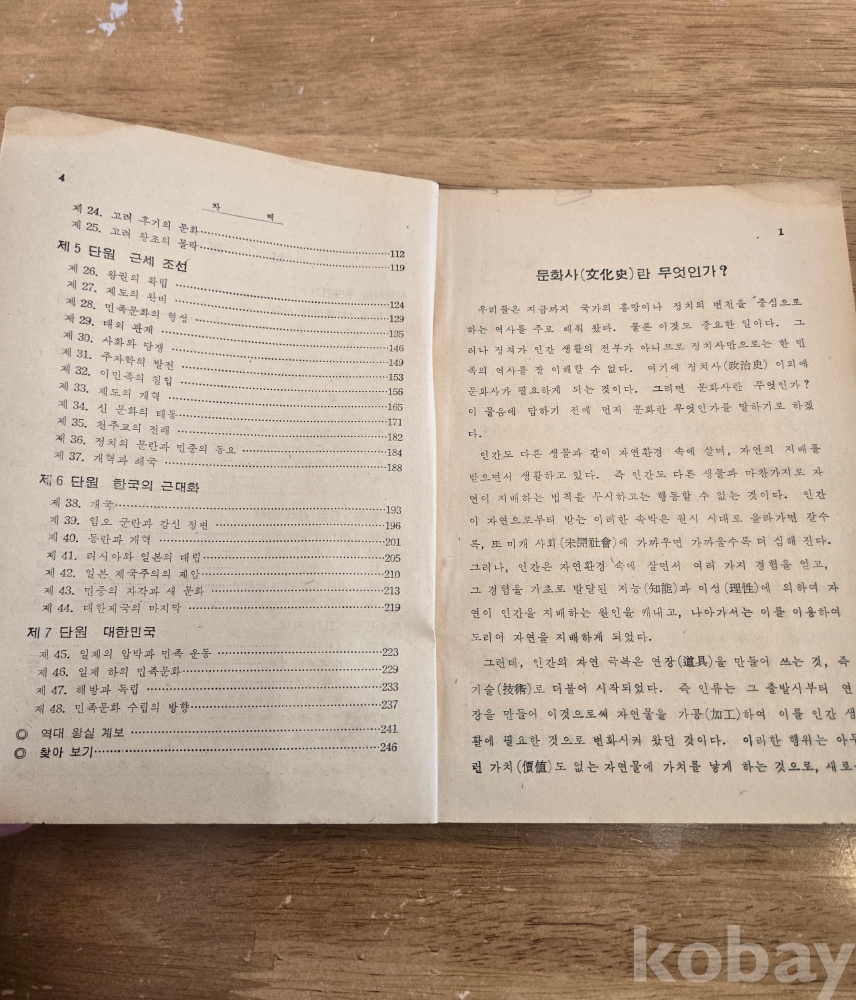 4
차 례
제 24. 고려 후기의 문화
제 25. 고려 왕조의 몰락 112
제 5 단원 근세 조선 119
제 26. 왕권의 확립
제 27. 제도의 완비 124
제 28. 민족문화의 형성 129
제 29. 대외 관계 135
제 30. 사화와 당쟁 146
제 31. 주자학의 발전 149
제 32. 이민족의 침입 153
제 33. 제도의 개혁 156
제 34. 신 문화의 태동 165
제 35. 천주교의 전래 171
제 36. 정치의 문란과 민중의 동요 182
제 37. 개혁과 쇄국 184
188
제 6 단원 한국의 근대화
제 38. 개국 193
제 39. 임오 군란과 갑신 정변 196
제 40. 동란과 개혁 201
제 41. 러시아와 일본의 대립 205
제 42. 일본 제국주의의 제압 210
제 43. 민중의 자각과 새 문화 213
제 44. 대한제국의 마지막 219
제 7 단원 대한민국
제 45. 일제의 압박과 민족 운동 223
제 46. 일제 하의 민족문화 229
제 47. 해방과 독립 233
제 48. 민족문화 수립의 방향 237
◎ 역대 왕실 계보 241
◎ 찾아 보기 246
1
문화사(文化史)란 무엇인가?
우리들은 지금까지 국가의 흥망이나 정치의 변천을 중심으로
하는 역사를 주로 배워 왔다. 물론 이것도 중요한 일이다. 그
러나 정치가 인간 생활의 전부가 아니므로 정치사만으로는 한 민
족의 역사를 잘 이해할 수 없다. 여기에 정치사(政治史) 이외에
문화사가 필요하게 되는 것이다. 그러면 문화사란 무엇인가?
이 물음에 답하기 전에 먼저 문화란 무엇인가를 말하기로 하겠
다.
인간도 다른 생물과 같이 자연환경 속에 살며, 자연의 지배를
받으면서 생활하고 있다. 즉 인간도 다른 생물과 마찬가지로 자
연이 지배하는 법칙을 무시하고는 행동할 수 없는 것이다. 인간
이 자연으로부터 받는 이러한 속박은 원시 시대로 올라가면 갈수
록, 또 미개 사회(未開社會)에 가까우면 가까울수록 더 심해 진다.
그러나, 인간은 자연환경 속에 살면서 여러 가지 경험을 얻고,
그 경험을 기초로 발달된 지능(知能)과 이성(理性)에 의하여 자
연이 인간을 지배하는 원인을 캐내고, 나아가서는 이를 이용하여
도리어 자연을 지배하게 되었다.
그런데, 인간의 자연 극복은 연장(道具)을 만들어 쓰는 것, 즉
기술(技術)로 더불어 시작되었다. 즉 인류는 그 출발시부터 연
장을 만들어 이것으로써 자연물을 가공(加工)하여 이를 인간 생
활에 필요한 것으로 변화시켜 왔던 것이다. 이러한 행위는 아무
런 가치(價值)도 없는 자연물에 가치를 낳게 하는 것으로, 새로
kobay